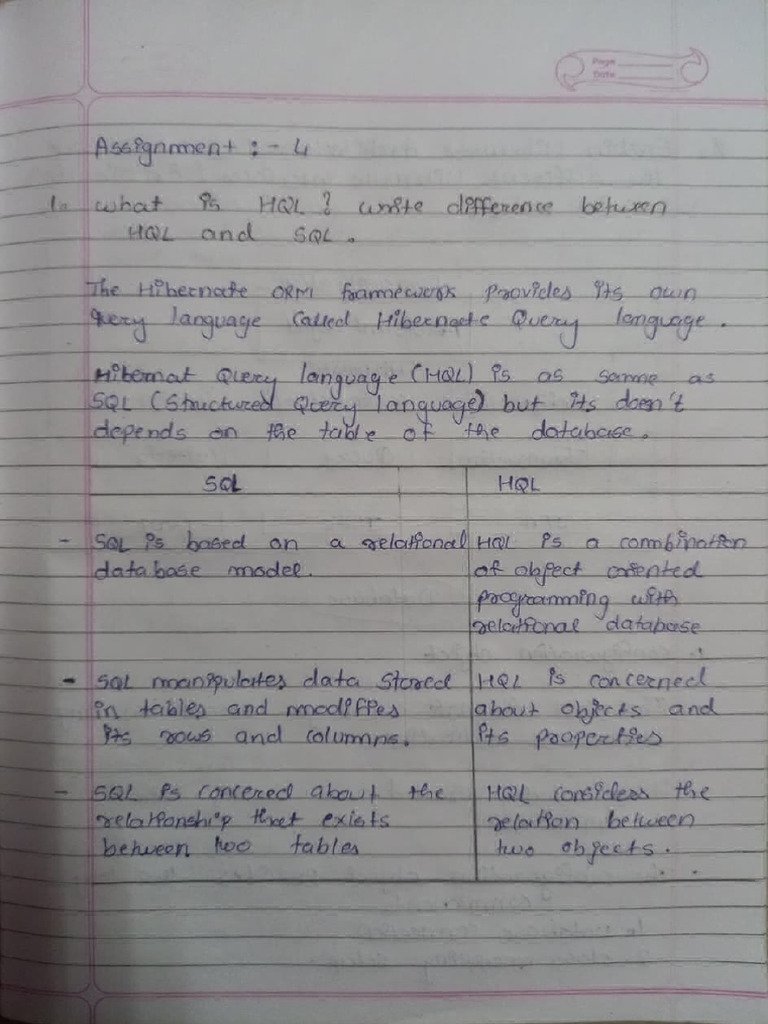 Page
Date
Assignment :- 4
1. what is HQL ? write difference between
HQL and SQL .
The Hibernate ORM framework provides its own
query language called Hibernate Query language .
Hibernat Query language (HQL) is as same as
SQL (Structured Query language) but its doesn't
depends on the table of the database .
SQL HQL
- SQL is based on a relational HQL is a combination
database model. of object oriented
programming with
relational database
- SQL manipulates data stored HQL is concerned
in tables and modifies about objects and
its rows and columns. its properties
- SQL is concered about the HQL considers the
relationship that exists relation between
between two tables two objects .